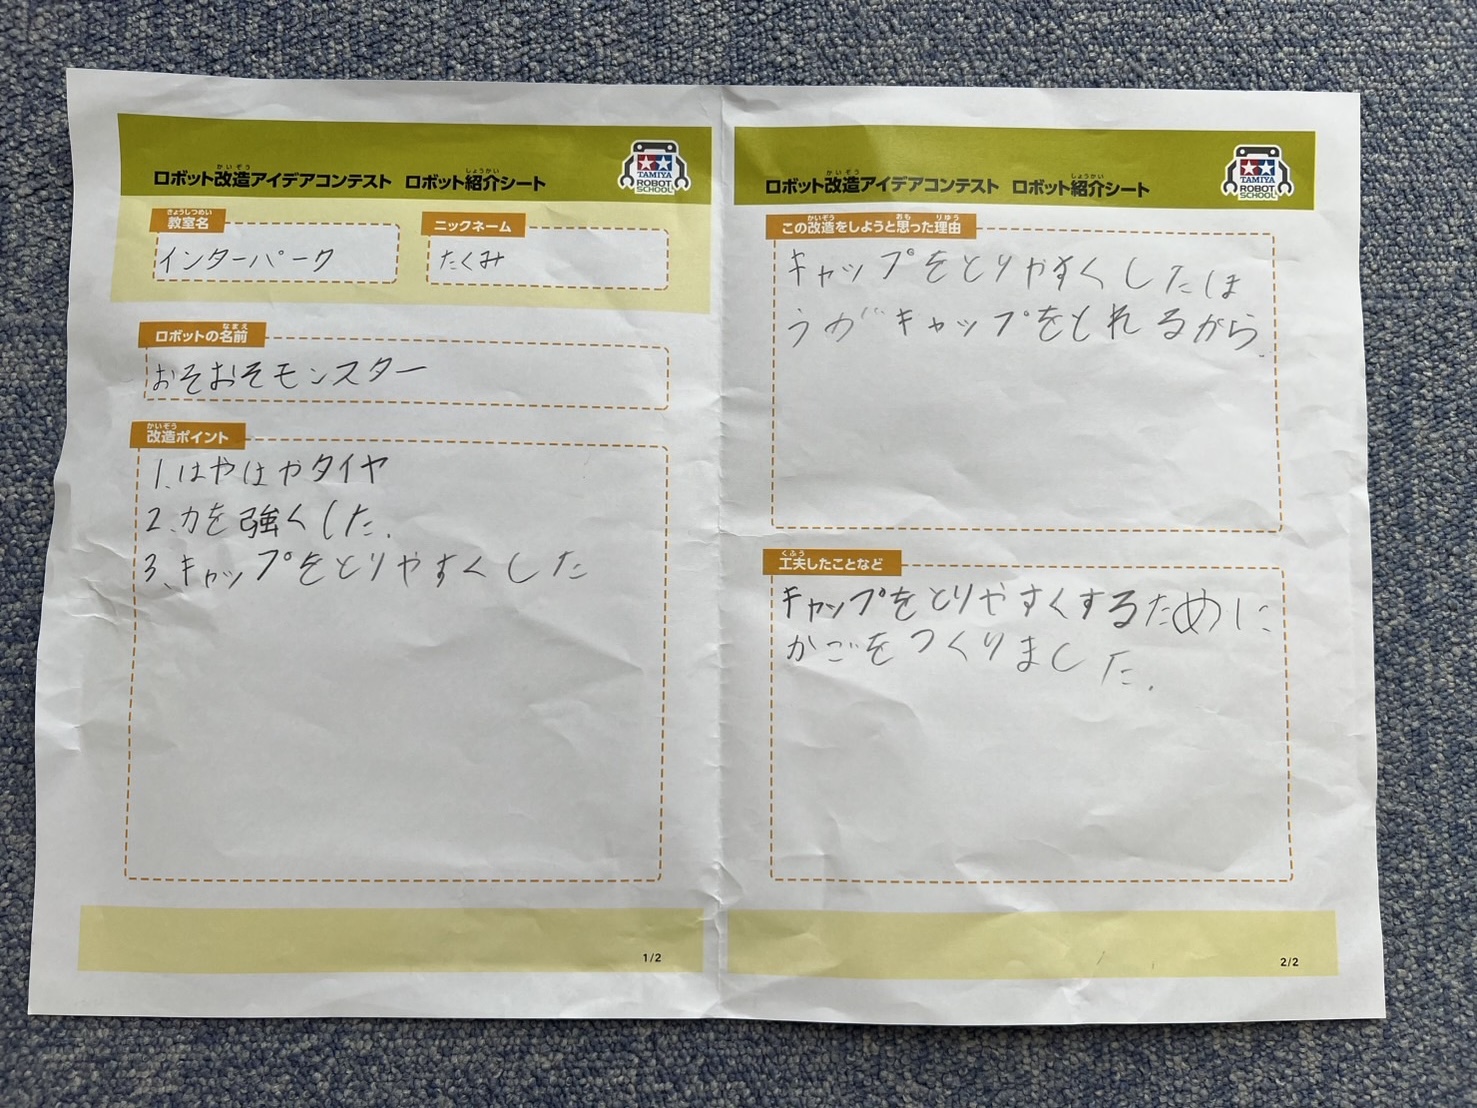 ロボット改造アイデアコンテスト ロボット紹介シート
かいぞう
しょうかい
TAMIYA
ROBOT
SCHOOL
きょうしつめい
教室名
インターパーク
ニックネーム
たくみ
なまえ
ロボットの名前
おそおそモンスター
かいぞう
改造ポイント
1.はやはやタイヤ
2、力を強くした.
3、キャップをとりやすくした
1/2
ロボット改造アイデアコンテスト ロボット紹介シート
かいぞう
しょうかい
TAMIYA
ROBOT
SCHOOL
かいぞう おも りゆう
この改造をしようと思った理由
キャップをとりやすくしたほ
うがキャップをとれるから.
くふう
工夫したことなど
キャップをとりやすくするために
かごをつくりました.
2/2